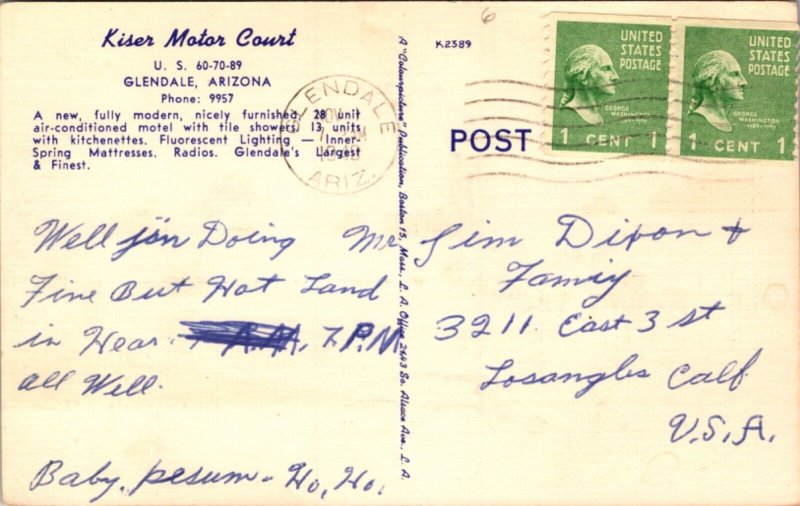 Kiser Motor Court
U. S. 60-70-89
GLENDALE, ARIZONA
Phone: 9957
A new, fully modern, nicely furnished, 28 unit
air-conditioned motel with tile showers, 13 units
with kitchenettes. Fluorescent Lighting — Inner-
Spring Mattresses. Radios. Glendale's Largest
& Finest.
GLENDALE
ARIZ.
A "Colourpicture" Publication, Boston 15, Mass., L. A. Office 2643 So. Alsace Ave., L. A.
K2389
6
POST
UNITED
STATES
POSTAGE
GEORGE
WASHINGTON
1 CENT 1
UNITED
STATES
POSTAGE
GEORGE
WASHINGTON
1 CENT 1
Well Doing
Fine But Hot Land
in Hear. 7 P.M
all Well.
Baby. pesum - Ho, Ho.
Mr Jim Dixon +
Famiy
3211 East 3 st
Losangles Calf
U.S.A.